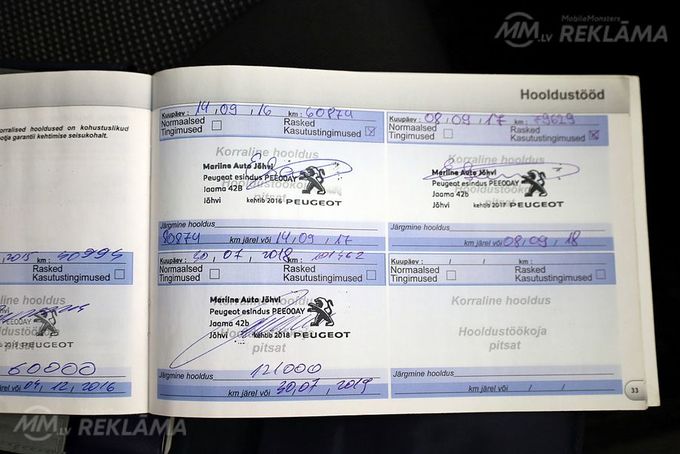 MobileMonsters
MM.LV REKLĀMA
Hooldustööd
korralised hooldused on kohustuslikud
garantii kehtimise seisukohalt.
Kuupäev : 14,09,16 km : 60874
Normaalsed Tingimused
Rasked Kasutustingimused
Korraline hooldus
Marline Auto Jõhvi
Peugeot esindus PEE00AY
Jaama 42B
Jõhvi kehtib 2016 PEUGEOT
Hooldustöökoja
pitsat
Järgmine hooldus
80874 km järel või 14,09,17
Kuupäev : 08,09,17 km : 79629
Normaalsed Tingimused
Rasked Kasutustingimused
Korraline hooldus
Marline Auto Jõhvi
Peugeot esindus PEE00AY
Jaama 42B
Jõhvi kehtib 2017 PEUGEOT
Hooldustöökoja
pitsat
Järgmine hooldus
km järel või 08,09,18
2015 km
Rasked
Kasutustingimused
PEE00AY
PEUGEOT
60000
või 04,12,2016
Kuupäev : 30,07,2018 km : 101462
Normaalsed Tingimused
Rasked Kasutustingimused
Korraline hooldus
Marline Auto Jõhvi
Peugeot esindus PEE00AY
Jaama 42b
Jõhvi kehtib 2018 PEUGEOT
pitsat
Järgmine hooldus 121000
km järel või 30,07,2019
Kuupäev : / / km :
Normaalsed Tingimused
Rasked Kasutustingimused
Korraline hooldus
Hooldustöökoja
pitsat
Järgmine hooldus
km järel või / /
33
MM.LV REKLĀMA